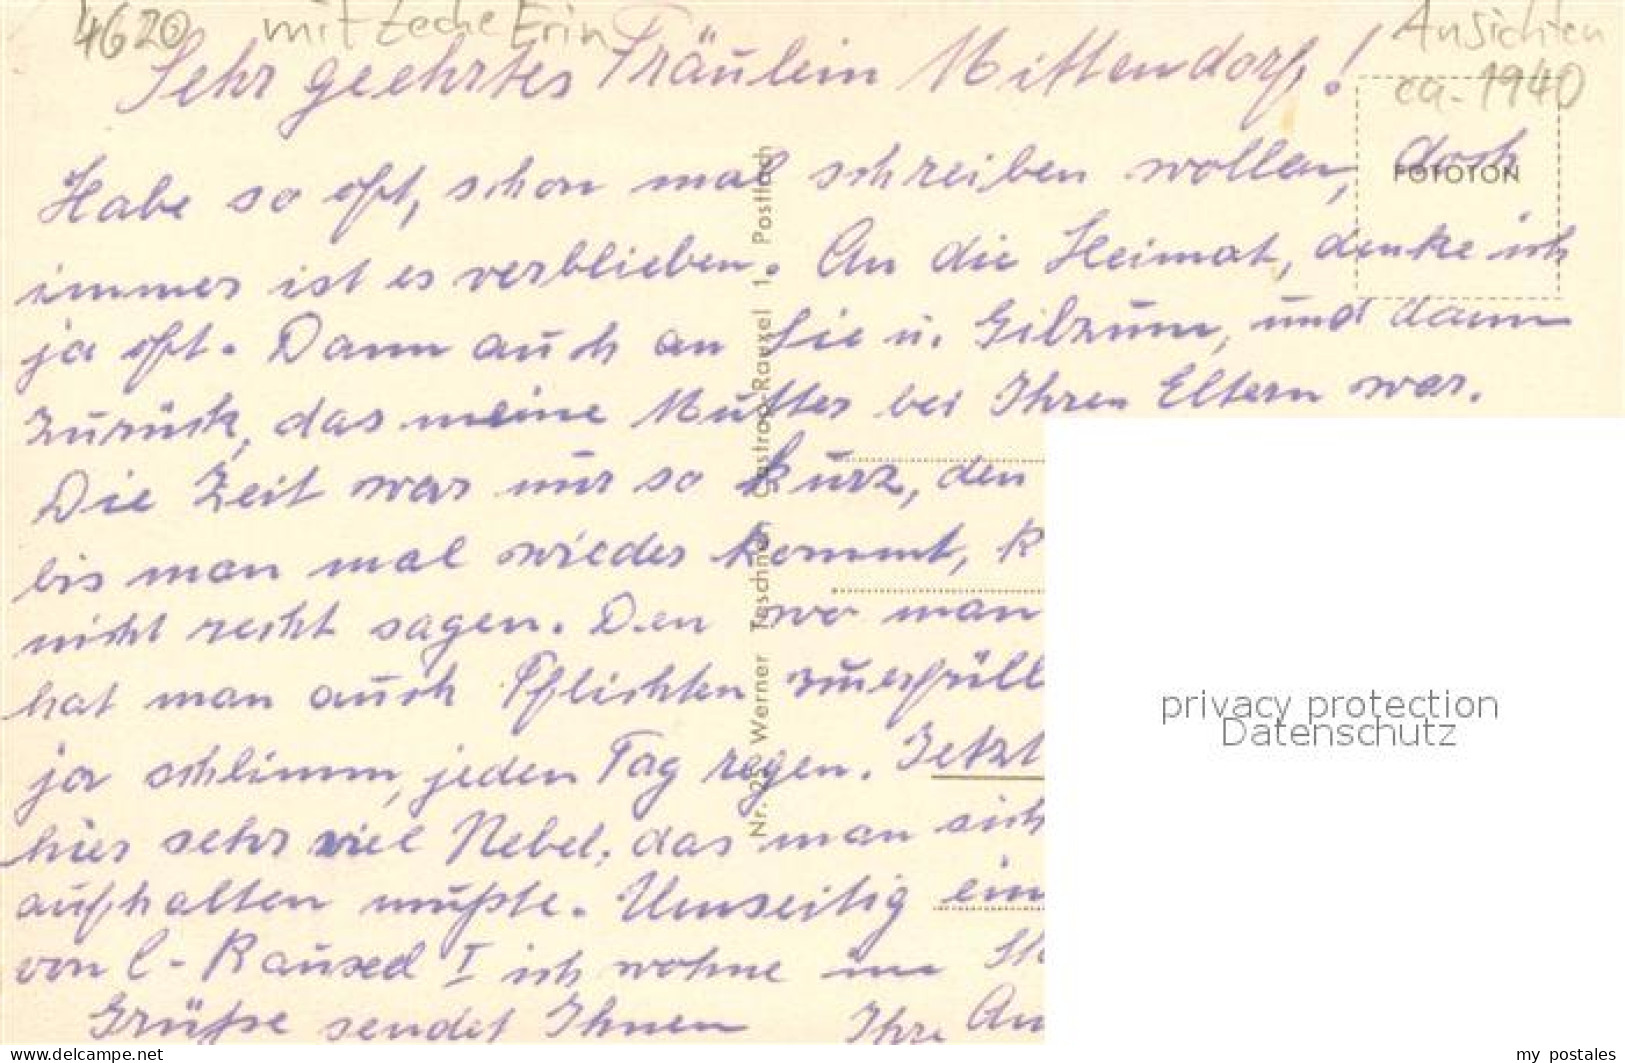 4620 mit Zeche Erin
Ansichten
ca. 1940
Sehr geehrtes Fräulein Mittendorf!
Habe so oft, schon mal schreiben wollen, doch
immer ist es verblieben. An die Heimat, denke ich
ja oft. Dann auch an Sie u. Gilzum, und dann
zurück, das meine Mutter bei Ihren Eltern war.
Die Zeit war nur so kurz, den
bis man mal wieder kommt, k
nicht recht sagen. Den wo man
hat man auch Pflichten zuerfüll
ja schlimm, jeden Tag regen. Jetzt
hier sehr viel Nebel, das man sich
aufhalten mußte. Umseitig ein
von C-Rauxel I ich wohne im
Grüße sendet Ihnen Ihre An
FOTOTON
Nr. 25 Werner Teschner, Castrop-Rauxel 1, Postfach
privacy protection
Datenschutz
www.delcampe.net
my_postales